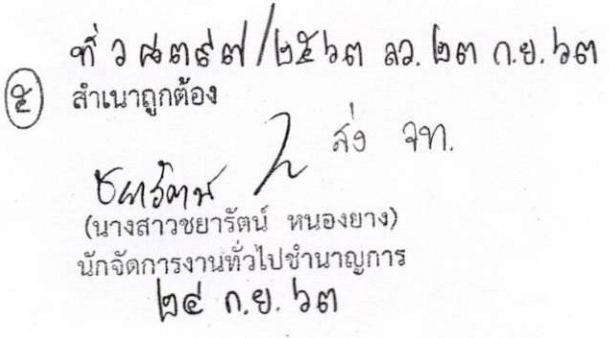 ที่ ว ๘๓๙๗/๒๕๖๓ ลว. ๒๓ ก.ย. ๖๓
๕ สำเนาถูกต้อง
ส่ง จท.
ชยารัตน์
(นางสาวชยารัตน์ หนองยาง)
นักจัดการงานทั่วไปชำนาญการ
๒๔ ก.ย. ๖๓